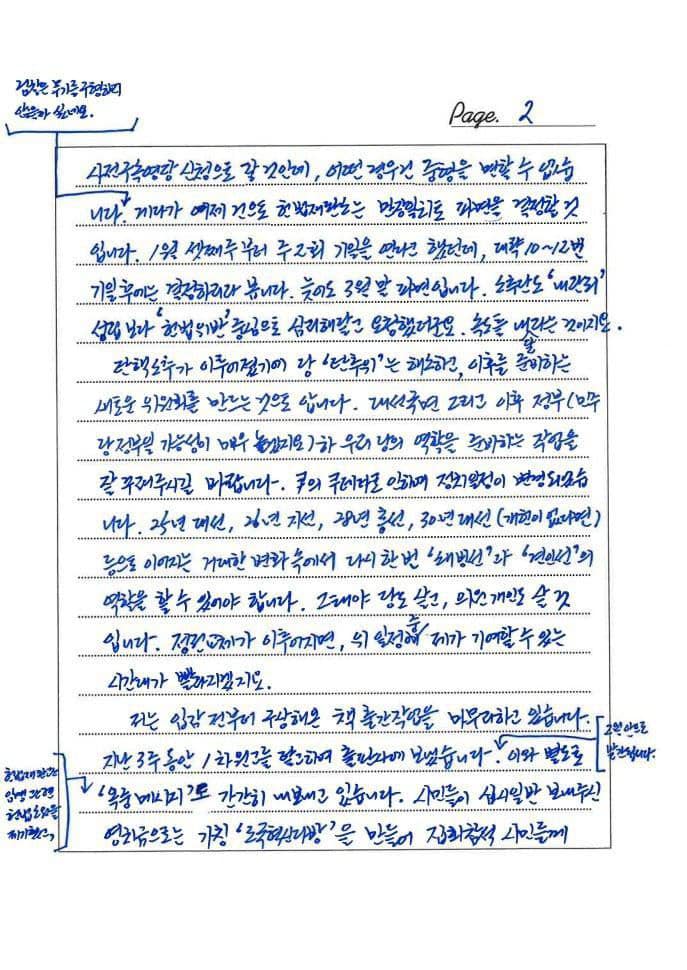 검찰은 무기를 구형하리
않을까 싶네요.
Page. 2
사전구속영장 신청으로 갈 것인데, 어떤 경우건 중형을 면할 수 없습
니다. 게다가 어제 건으로 헌법재판소는 만장일치로 파면을 결정할 것
입니다. 1월 셋째주부터 주2회 기일을 연다고 했던데, 대략 10~12번
기일 후에는 결정하리라 봅니다. 늦어도 3월 말 파면입니다. 소추단도 '내란죄'
성립 보다 '헌법위반' 중심으로 심리해달고 요청했더군요. 속도를 내라는 것이지요.
탄핵소추가 이루어졌기에 당 '탄추위'는 해소하고, 이후를 준비하는
새로운 위원회를 만드는 것으로 압니다. 대선국면 그리고 이후 정부(민주
당 정부일 가능성이 매우 높겠지요)하 우리 당의 역할을 준비하는 작업을
잘 해주시길 바랍니다. 尹의 쿠데타로 인하여 정치일정이 변경되었습
니다. 25년 대선, 26년 지선, 28년 총선, 30년 대선(개헌이 없다면)
등으로 이어지는 거대한 변화 속에서 다시 한번 '쇄빙선'과 '견인선'의
역할을 할 수 있어야 합니다. 그래야 당도 살고, 의원 개인도 살 것
입니다. 정권교체가 이루어지면, 위 일정 중 제가 기여할 수 있는
시간대가 빨라지겠지요.
저는 입감 전부터 구상해온 책 출간작업을 마무리하고 있습니다.
2월 안으로
발간됩니다.
지난 3주 동안 1차 원고를 탈고하여 출판사에 보냈습니다. 이와 별도로
헌법재판관
임명 관련
헌법소원을
제기했고,
'옥중 메시지'도 간간히 내보내고 있습니다. 시민들이 십시일반 보내주신
영치금으로는 가칭 '조국혁신다방'을 만들어 집회참석 시민들께